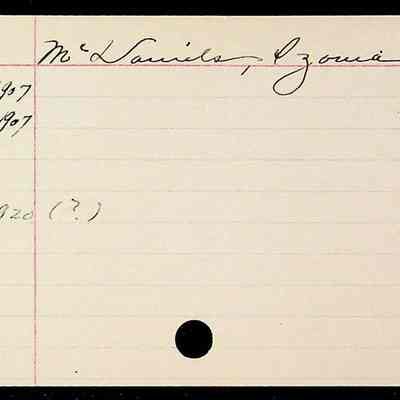 McDaniels, Ozonia
1907
1907
1920 (?)